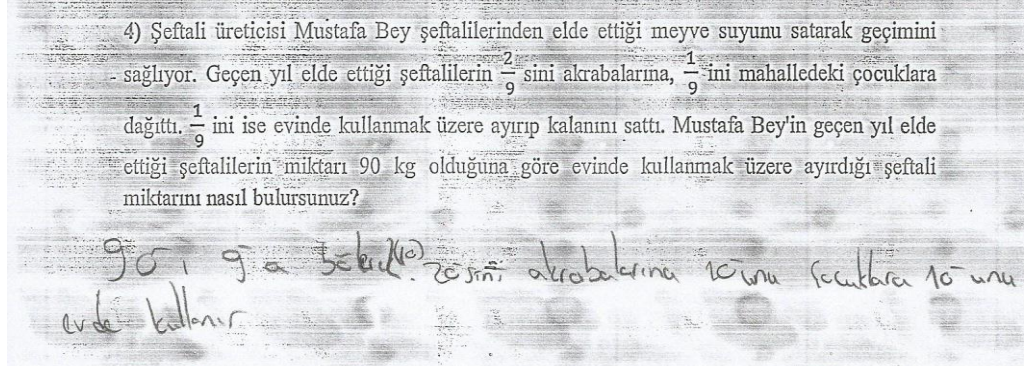 4) Şeftali üreticisi Mustafa Bey şeftalilerinden elde ettiği meyve suyunu satarak geçimini
sağlıyor. Geçen yıl elde ettiği şeftalilerin 2/9 sini akrabalarına, 1/9 ini mahalledeki çocuklara
dağıttı. 1/9 ini ise evinde kullanmak üzere ayırıp kalanını sattı. Mustafa Bey'in geçen yıl elde
ettiği şeftalilerin miktarı 90 kg olduğuna göre evinde kullanmak üzere ayırdığı şeftali
miktarını nasıl bulursunuz?
90 ı 9 a böleriz (10) 20 sini akrabalarına 10 unu çocuklara 10 unu
evde kullanır